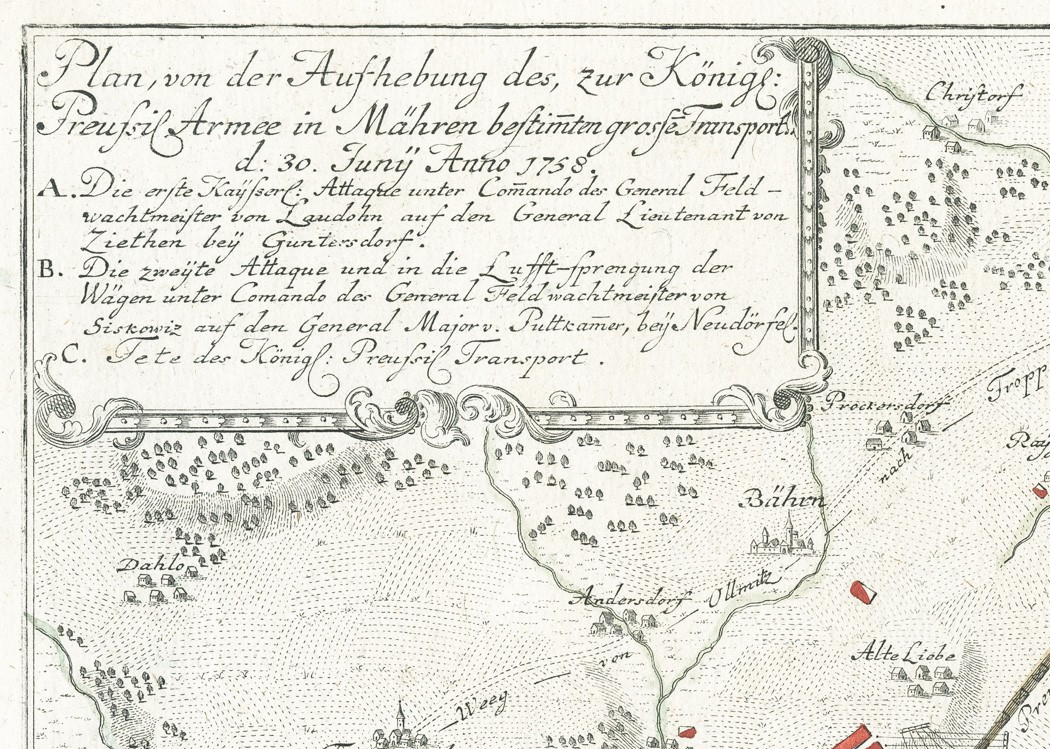 Plan, von der Aufhebung des, zur Königl:
Preußisl Armee in Mähren bestim̅ten grosse̅ Transports.
d: 30. Junÿ Anno 1758.
A. Die erste Kaÿsserl: Attaque unter Com̅ando des General Feld-
wachtmeister von Laudohn auf den General Lieutenant von
Ziethen beÿ Guntersdorf.
B. Die zweÿte Attaque und in die Lufft-sprengung der
Wägen unter Comando des General Feldwachtmeister von
Siskowiz auf den General Major v. Puttkam̅er, beÿ Neudörfel.
C. Tete des Königl: Preußisl Transport.
Christorf
Prockersdorf
Tropp
nach
Bährn
Dahlo
Andersdorf
Ollmitz
von
Alte Liebe
Weeg